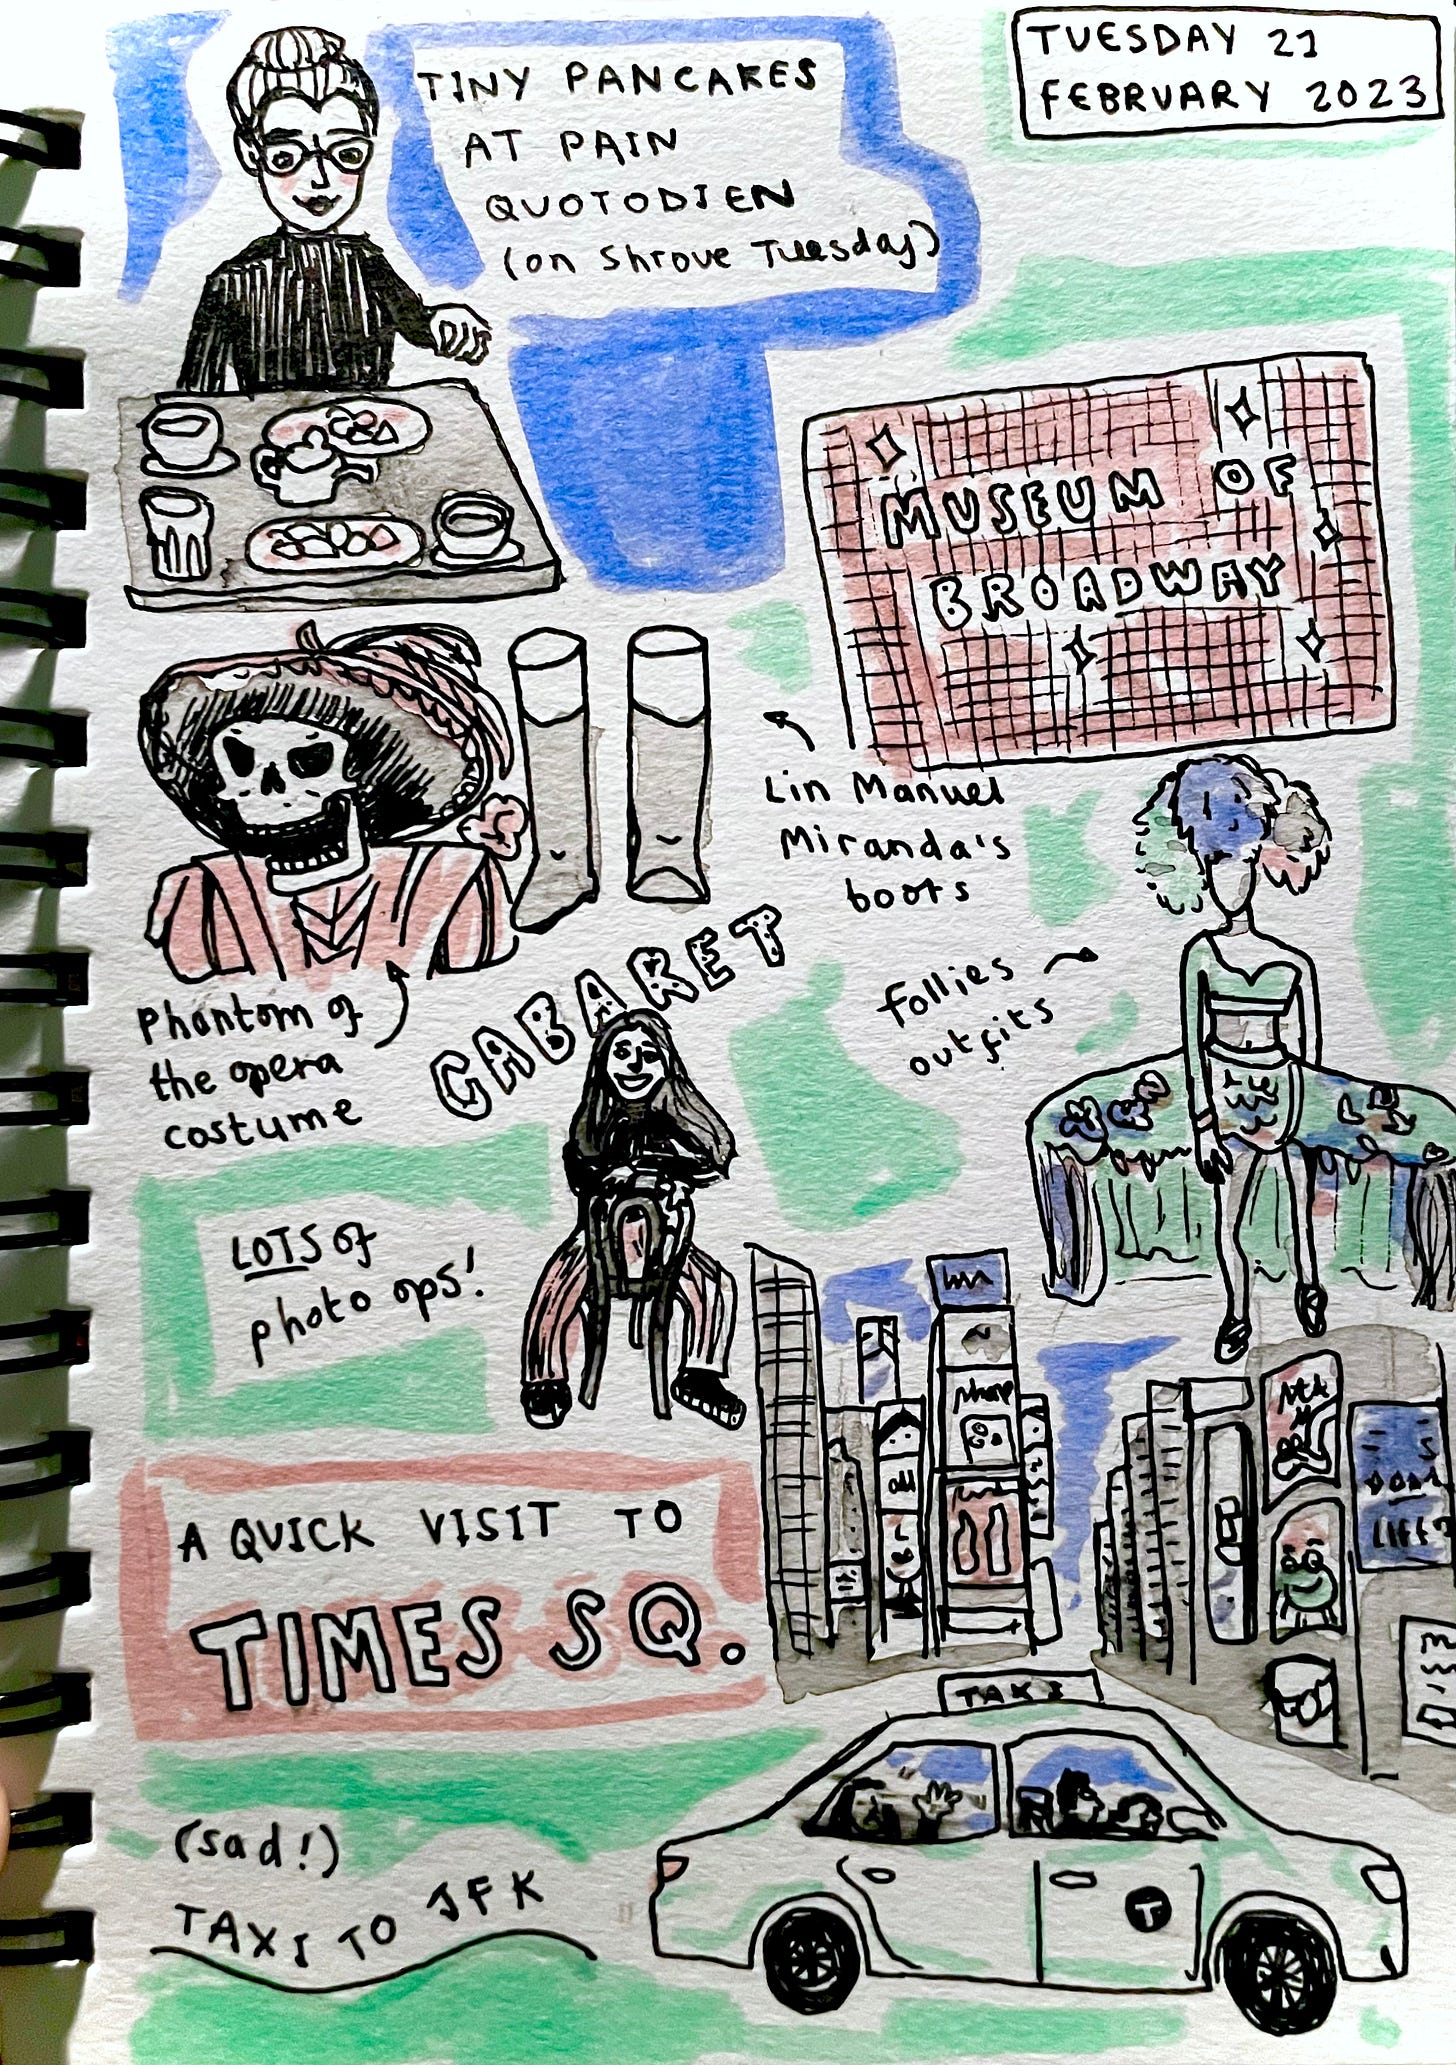 TUESDAY 21
FEBRUARY 2023
TINY PANCAKES
AT PAIN
QUOTODIEN
(on Shrove Tuesday)
MUSEUM OF
BROADWAY
Lin Manuel
Miranda's
boots
Phantom of
the opera
costume
CABARET
follies
outfits
LOTS of
photo ops!
A QUICK VISIT TO
TIMES SQ.
TAXI
T
(sad!)
TAXI TO JFK